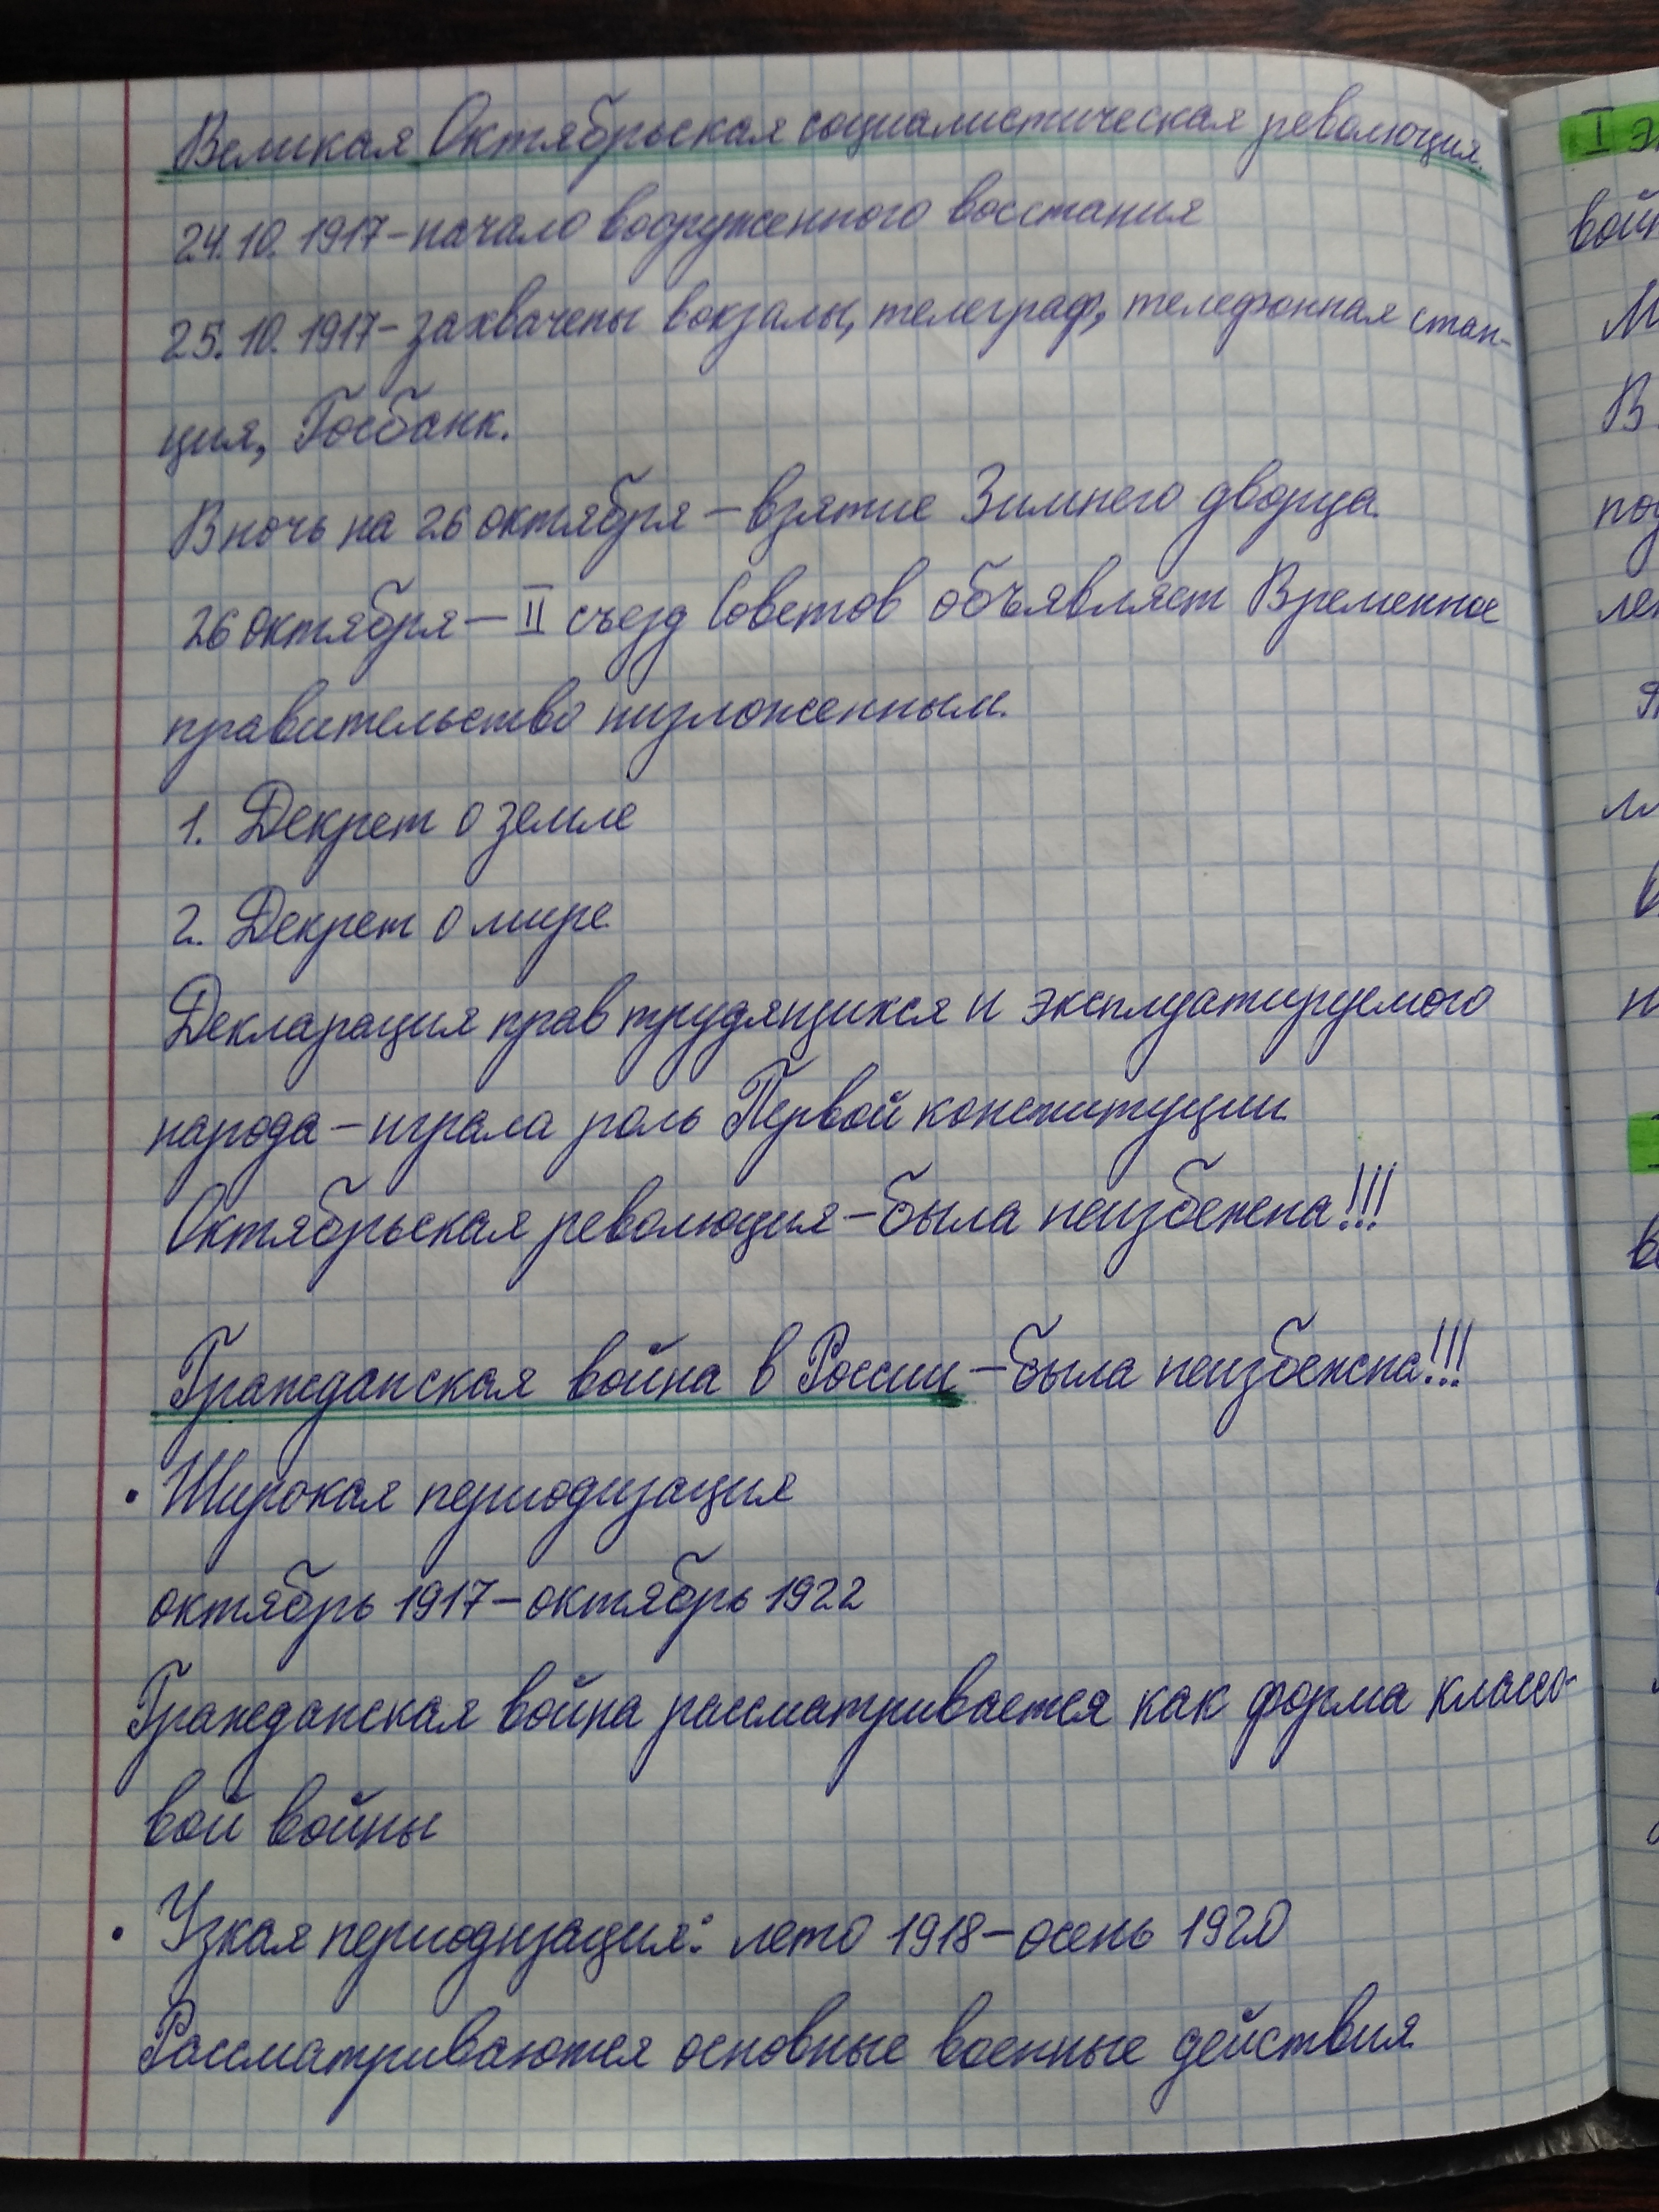 Великая Октябрьская социалистическая революция.
24.10.1917 – начало вооруженного восстания
25.10.1917 – захвачены вокзалы, телеграф, телефонная стан-
ция, Госбанк.
В ночь на 26 октября – взятие Зимнего дворца.
26 октября – II съезд Советов объявляет Временное
правительство низложенным.
1. Декрет о земле
2. Декрет о мире
Декларация прав трудящихся и эксплуатируемого
народа – играла роль Первой конституции.
Октябрьская революция – была неизбежна!!!
Гражданская война в России – была неизбежна!!!
• Широкая периодизация
октябрь 1917 – октябрь 1922
Гражданская война рассматривается как форма классо-
вой войны
• Узкая периодизация: лето 1918 – осень 1920
Рассматриваются основные военные действия.
I
В